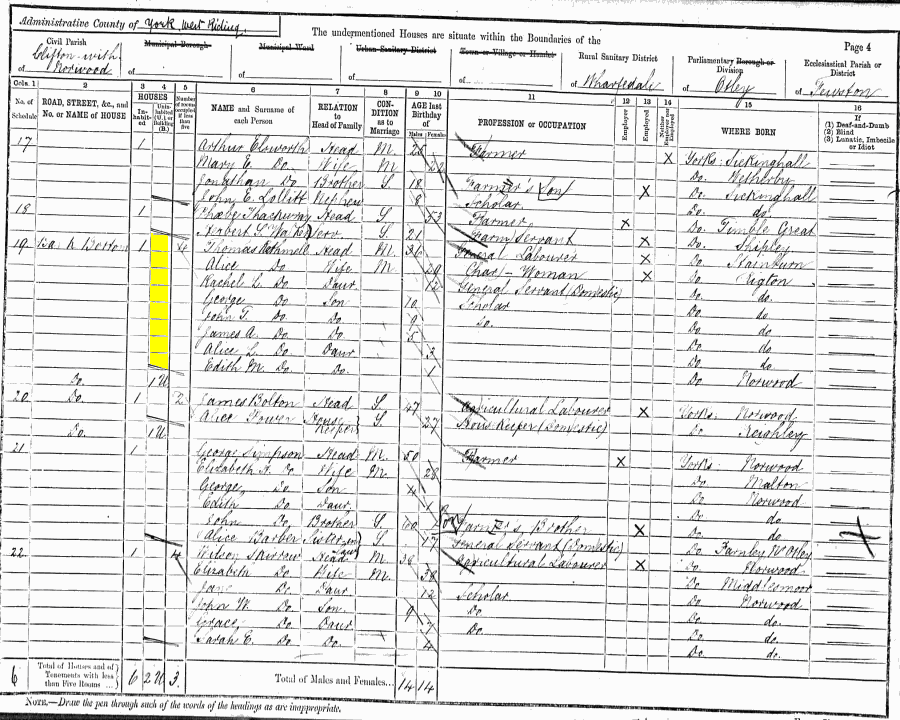 Administrative County of York, West Riding.
The undermentioned Houses are situate within the Boundaries of the
Page 4
Civil Parish
Municipal Borough
Municipal Ward
Urban Sanitary District
Town or Village or Hamlet
Rural Sanitary District
Parliamentary Borough or Division
Ecclesiastical Parish or District
of Clifton-with Norwood
of
of
of
of
of Wharfedale
of Otley
of Fewston
Cols. 1 2 3 4 5 6 7 8 9 10 11 12 13 14 15 16
No. of Schedule
ROAD, STREET, &c., and No. or NAME of HOUSE
HOUSES
In-habit-ed
Unin-habited (U.) or Building (B.)
Number of rooms occupied if less than five
NAME and Surname of each Person
RELATION to Head of Family
CON-DITION as to Marriage
AGE last Birthday of
Males
Females
PROFESSION or OCCUPATION
Employer
Employed
Neither employer nor employed
WHERE BORN
If
(1) Deaf-and-Dumb
(2) Blind
(3) Lunatic, Imbecile or Idiot
17 1 Arthur Head M. Farmer X Yorks: Sickinghall
Mary E. Do. Wife M. 22 Do. Wetherby
Jonathan Do. Brother S. 18 Farmer's Son X Do. Sickinghall
John E. Nephew 8 Scholar Do. do.
18 1 Phœbe Thackwray Head S. 53 Farmer X Do. Timble Great
Herbert S. Serv S. 21 Farm Servant X Do. Shipley
19 1 4 Thomas Head M. 36 General Labourer X Do. Stainburn
Alice Do. Wife M. 29 Char-Woman X Do. Rigton
Rachel L. Do. Daur 12 General Servant (Domestic) Do. do.
George Do. Son 10 Scholar Do. do.
John T. Do. Do. 9 Do. Do. do.
James A. Do. Do. 5 Do. do.
Alice L. Do. Daur 3 Do. do.
Edith M. Do. Do. 1 Do. Norwood
Do. 1U
20 Do. 1 2 James Bolton Head S. 47 Agricultural Labourer X Yorks: Norwood
Alice Tower House Keeper S. 27 House Keeper (Domestic) Do. Keighley
Do. 1U
21 1 George Simpson Head M. 50 Farmer X Yorks: Norwood
Elizabeth H. Do. Wife M. 28 Do. Malton
George Do. Son 4 Do. Norwood
Edith Do. Daur Do. do.
John Do. Brother S. 60 Farmer's Brother X Do. do.
Alice Barber Sister in Law S. 17 General Servant (Domestic) Do. Farnley Nr Otley
22 1 4 Wilson Head M. 38 Agricultural Labourer X Do. Norwood
Elizabeth Do. Wife M. 38 Do. Middlesmoor
Jane Do. Daur 12 Scholar Do. Norwood
John W. Do. Son 9 Do. Do. do.
Grace Do. Daur 7 Do. Do. do.
Sarah E. Do. Do. 4 Do. do.
6 Total of Houses and of Tenements with less than Five Rooms ... 6 2U 3. Total of Males and Females... 14 14
NOTE.—Draw the pen through such of the words of the headings as are inappropriate.